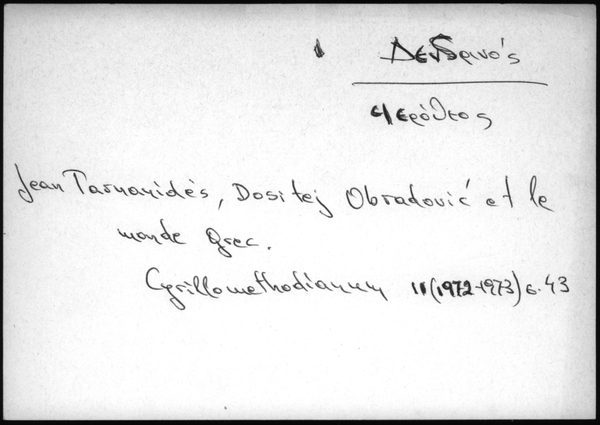 Δενδρινός
Ιερόθεος
Jean Tarnanidès, Dositej Obradović et le
monde Grec.
Cyrillomethodianum II (1972-1973) σ. 43